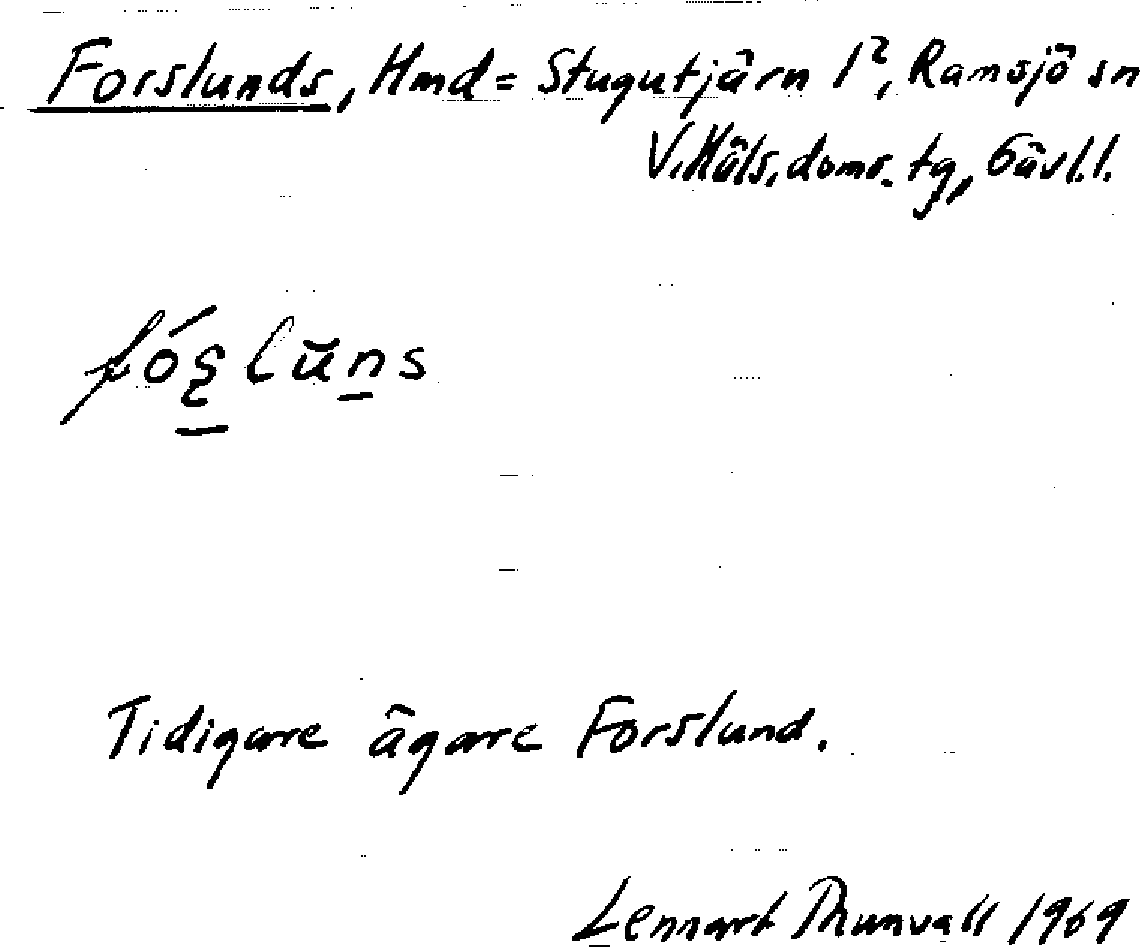 Forslunds, Hmd = Stugutjärn 1², Ramsjö sn
V. Häls. doms. tg, Gävl. l.
fóʂlūns
Tidigare ägare Forslund.
Lennart Thunvall 1969